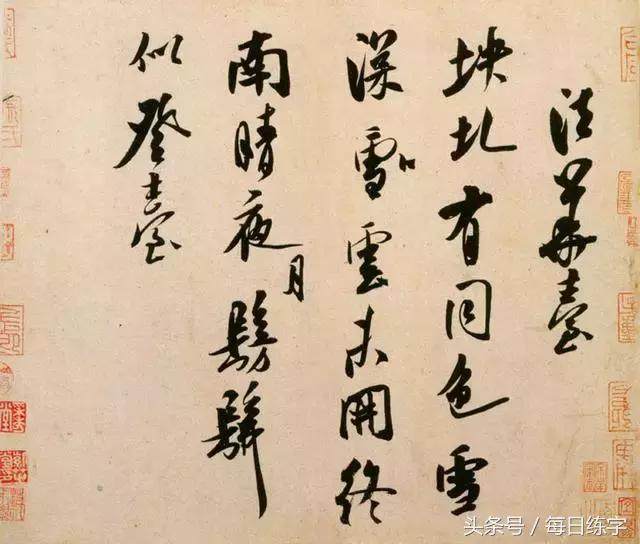 法華臺
坱圠有同色雪
深雪雲未開終
南晴夜月髣髴
似登臺
头条号 / 每日练字